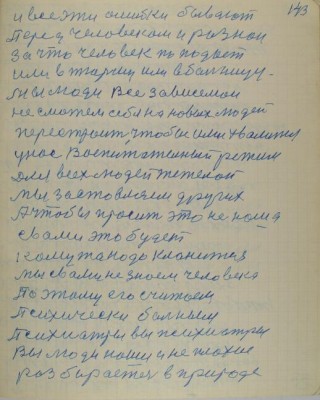 173
и все эти ошибки бывают
перед человеком и разной
за что человек попадает
или в тюрму или в больницу.
мы люди все зависемои
не сможем себя на новых людей
перестроит, чтобы ими хвалится
у нас Воспитателный режим
Для всех людей тежелой
мы заставляем других
А чтобы просит это не наша
с вами это будет
кому та надо кланится
мы с вами не знаем человека
По этому его считаем
Психически болным
Психиатры вы психиатры
Вы люди наши и не плохие
разбираетес в природе